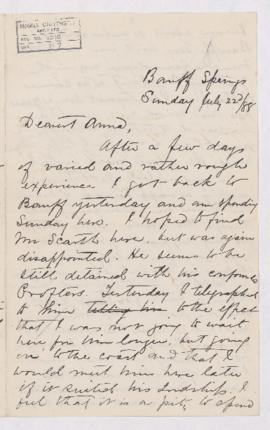 Banff Springs
Sunday July 22/88
Dearest Anna,
After a few days
of varied and rather rough
experience I got back to
Banff yesterday and am spending
Sunday here. I hoped to find
Mr Scarth here, but was again
disappointed. He seems to be
still detained with his confounded
Crofters. Yesterday I telegraphed
to him telling him to the effect
that I was not going to wait
here for him longer, but going
on to the coast and that I
would meet him here later
if it suited his Lordship. I
feel that it is a pity to spend